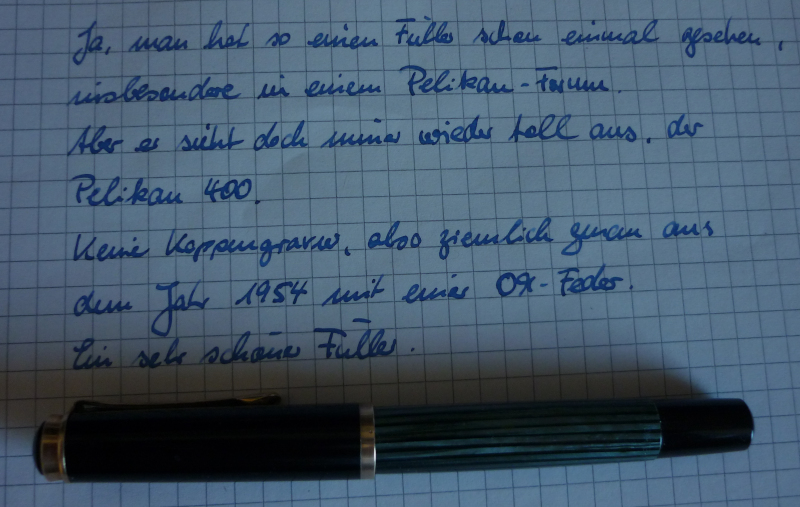 Ja, man hat so einen Füller schon einmal gesehen,
insbesondere in einem Pelikan-Forum.
Aber er sieht doch immer wieder toll aus, der
Pelikan 400.
Keine Kappengravur, also ziemlich genau aus
dem Jahr 1954 mit einer OM-Feder.
Ein sehr schöner Füller.